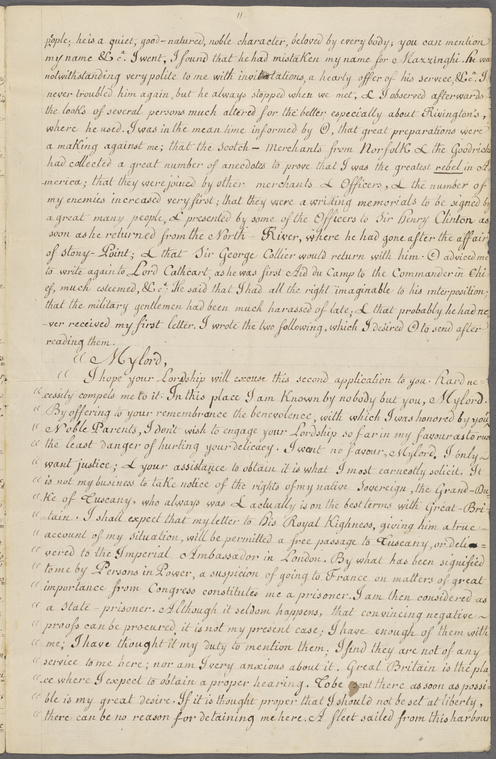 11
people; he is a quiet, good-natured, noble character, beloved by every body; you can mention
my name &c.a I went, I found that he had mistaken my name for Mazzinghi. He was
notwithstanding very polite to me with invitations, a hearly offer of his service, &c.a I
never troubled him again, but he always stopped when we met, & I observed afterwards
the looks of several persons much altered for the better, especially about Rivington's,
where he used. I was in the mean time informed by O, that great preparations were
a making against me; that the Scotch-Merchants from Norfolk & the Goodricks
had collected a great number of anecdotes to prove that I was the greatest rebel in A-
merica; that they were joined by other merchants & Officers, & the number of
my enemies increased very first; that they were a writing memorials to be signed by
a great many people, & presented by some of the Officers to Sir Henry Clinton as
soon as he returned from the North-River, where he had gone after the affair
of Stony-Point; & that Sir George Collier would return with him. O adviced me
to write again to Lord Cathcart, as he was first Aid du Camp to the Commander in Chi-
ef, much esteemed, &c.a He said that I had all the right imaginable to his interposition;
that the military gentlemen had been much harassed of late; & that probably he had ne
-ver received my first letter. I wrote the two following, which I desired O to send after
reading them.
" Mylord,
" I hope your Lordship will excuse this second application to you. Hard ne-
" cessity compels me to it. In this place I am Known by nobody but you, Mylord.
" By offering to your remembrance the benevolence, with which I was honored by your
" Noble Parents, I don't wish to engage your Lordship so far in my favour as to run
" the least danger of hurting your delicacy. I want no favour, Mylord, I only
" want justice; & your assistance to obtain it is what I most earnestly solicit. It
" is not my business to take notice of the rights of my native Sovereign, the Grand-Du-
" ke of Tuscany, who always was & actually is on the best terms with Great-Bri-
" tain. I shall expect that my letter to His Royal Highness, giving him a true
" account of my situation, will be permitted a free passage to Tuscany, or deli-
" vered to the Imperial Ambassador in London. By what has been signified
" to me by Persons in Power, a suspicion of going to France on matters of great
" importance from Congress constitutes me a prisoner. I am then considered as
" a State-prisoner. Although it seldom happens, that convincing negative
" proofs can be procured, it is not my present case; I have enough of them with
" me; I have thought it my duty to mention them; I find they are not of any
" service to me here; nor am I very anxious about it. Great Britain is the pla-
" ce where I expect to obtain a proper hearing. To be sent there as soon as possi-
" ble is my great desire. If it is thought proper that I should not be set at liberty,
" there can be no reason for detaining me here. A fleet sailed from this harbour